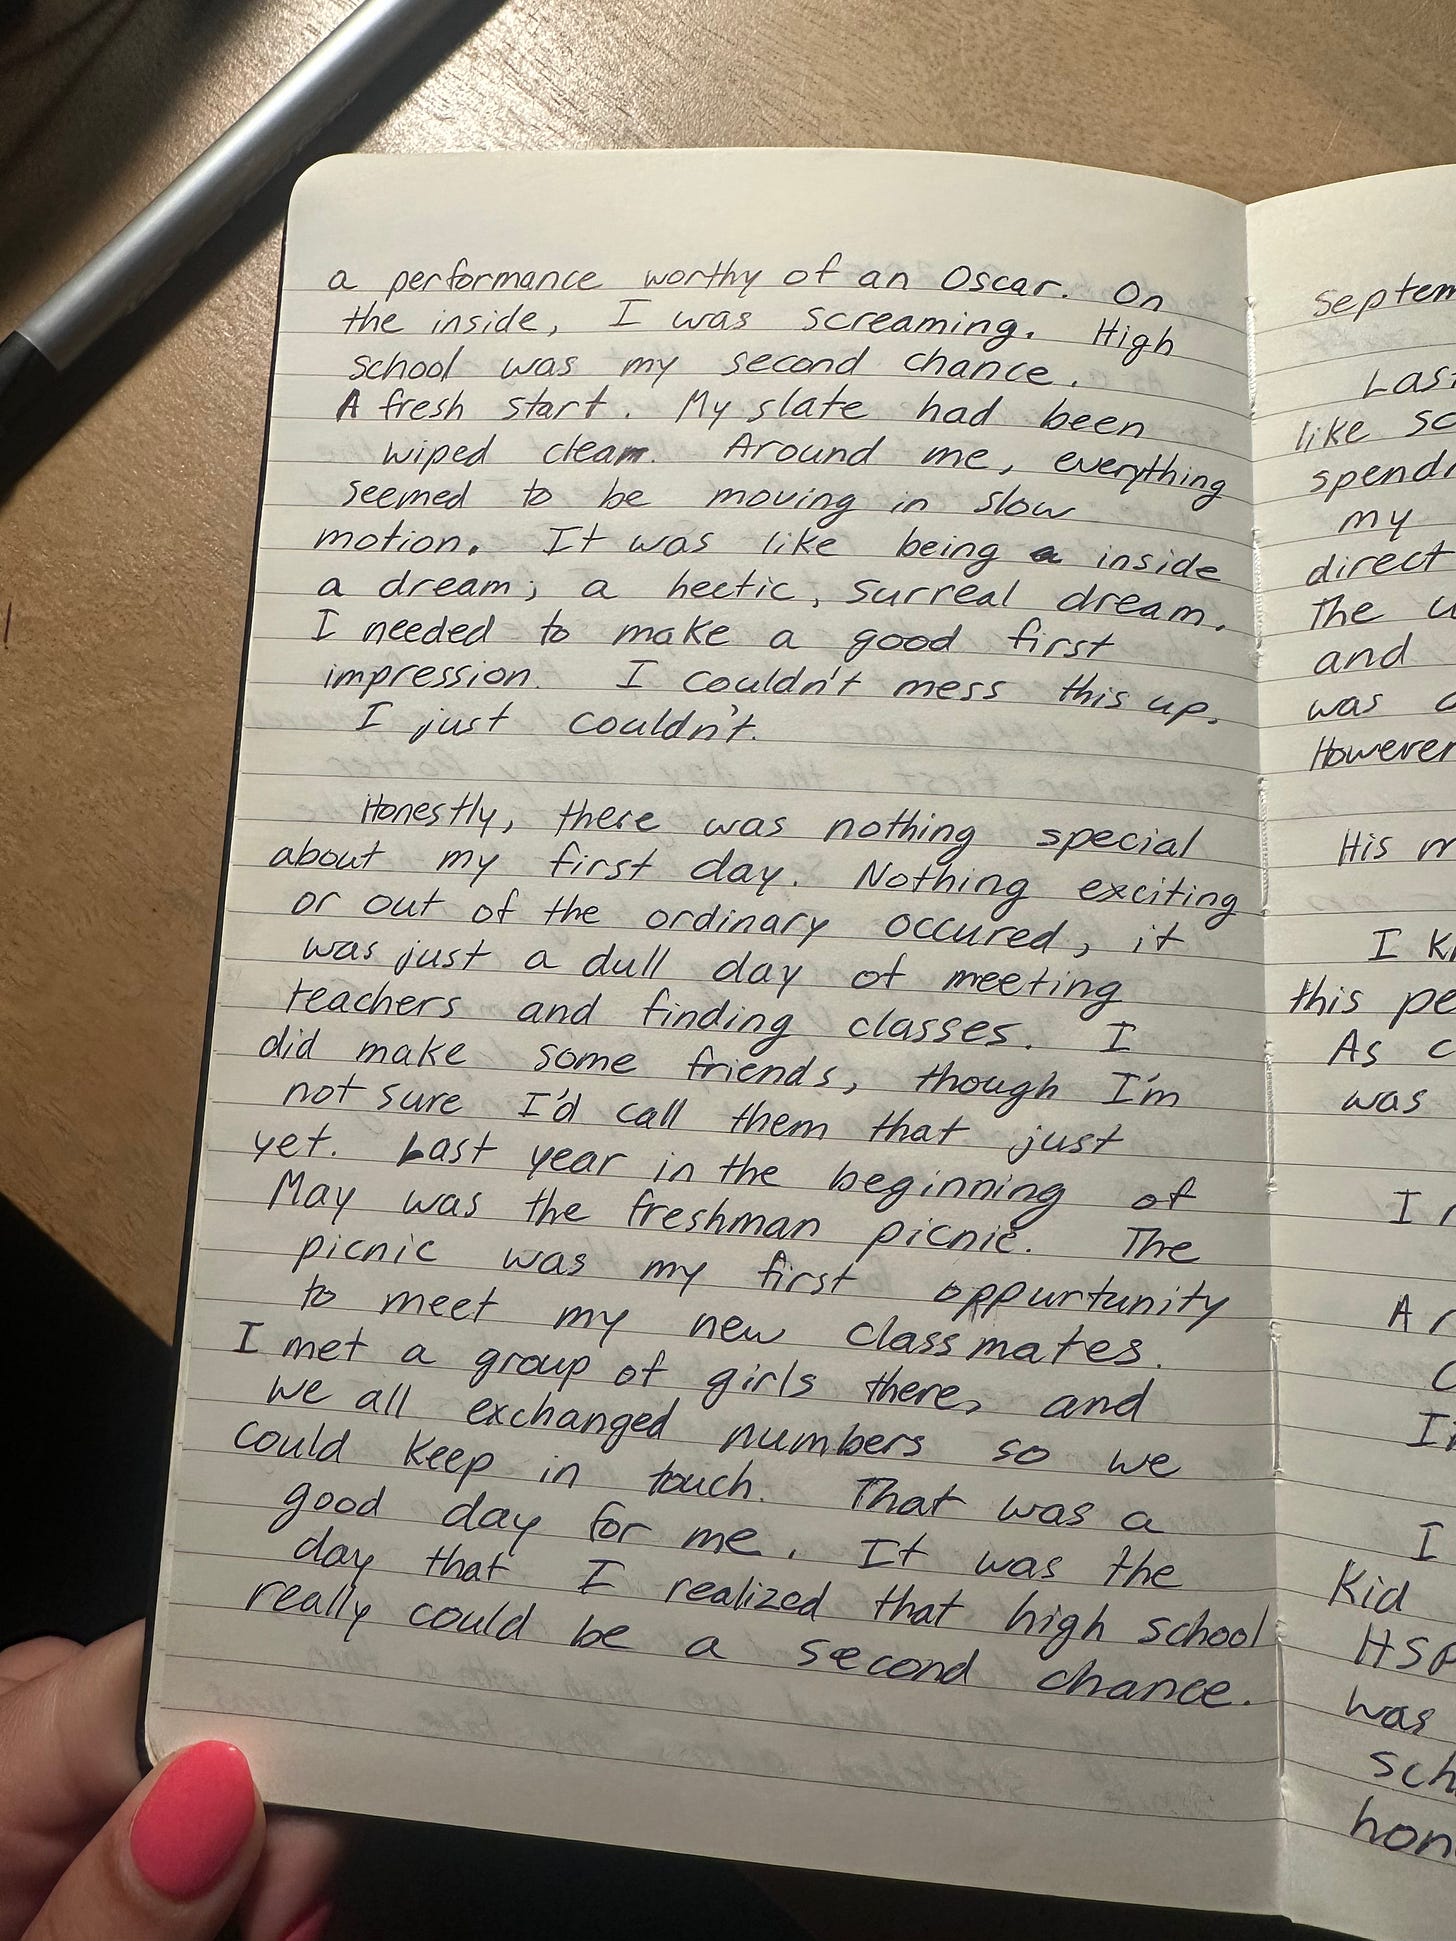 a performance worthy of an Oscar. On
the inside, I was screaming. High
school was my second chance.
A fresh start. My slate had been
wiped clean. Around me, everything
seemed to be moving in slow
motion. It was like being inside
a dream; a hectic, surreal dream.
I needed to make a good first
impression. I couldn't mess this up.
I just couldn't.
Honestly, there was nothing special
about my first day. Nothing exciting
or out of the ordinary occured, it
was just a dull day of meeting
teachers and finding classes. I
did make some friends, though I'm
not sure I'd call them that just
yet. Last year in the beginning of
May was the freshman picnic. The
picnic was my first oppurtunity
to meet my new classmates.
I met a group of girls there, and
we all exchanged numbers so we
could keep in touch. That was a
good day for me. It was the
day that I realized that high school
really could be a second chance.
Septem
Las
like sc
spend
my
direct
The
and
was
However
His m
I K
this pe
As c
was
I
A
I
Kid
HSP
was
sch
hon